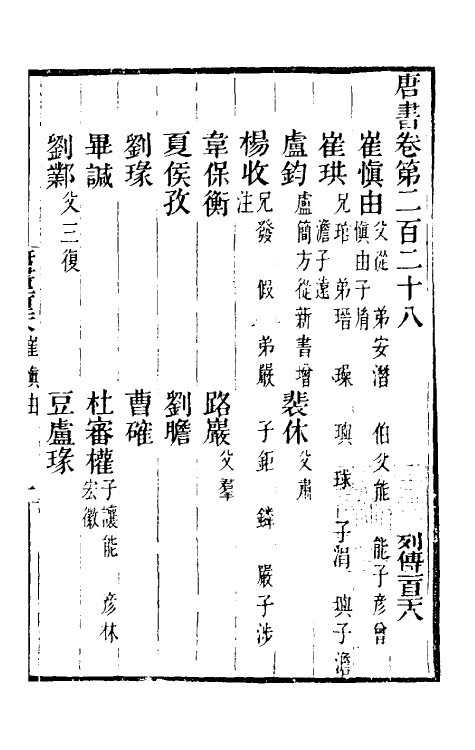 唐書卷第二百二十八 列傳一百六八
崔慎由 父從 弟安潛 伯父能 能子彥曾 慎由子胤
崔珙 兄琯 弟瑨 璪 璵 球 子涓 璵子澹 澹子遠
盧鈞 盧簡方從新書增 裴休 父肅
楊收 兄發 假 弟嚴 子鉅 鏻 嚴子涉 注
韋保衡 路巖 父羣
夏侯孜 劉瞻
劉瑑 曹確
畢諴 杜審權 子讓能 彥林 宏徽
劉鄴 父三復 豆盧瑑
崔慎由 一